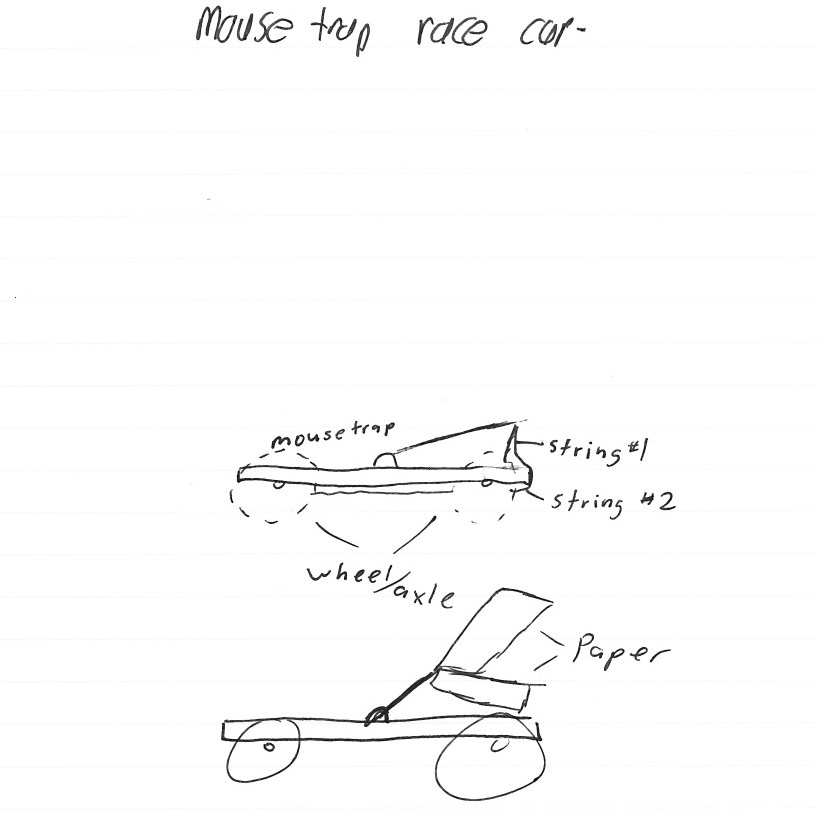 Mouse trap race car-
mousetrap
string #1
string #2
wheel/axle
Paper